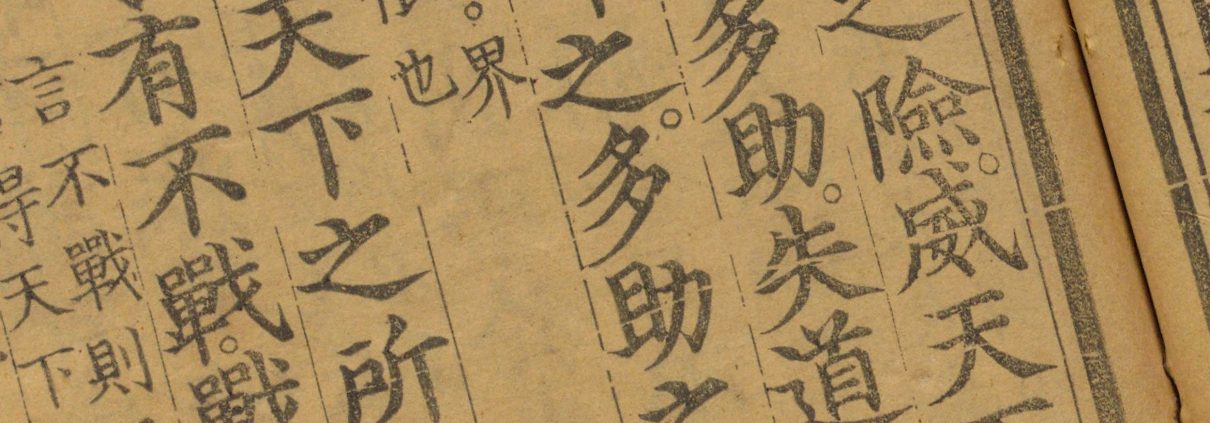 之險。威天下
多助。失道
之。多助之
界也
天下之所
有不戰。戰
不戰則
言得天下